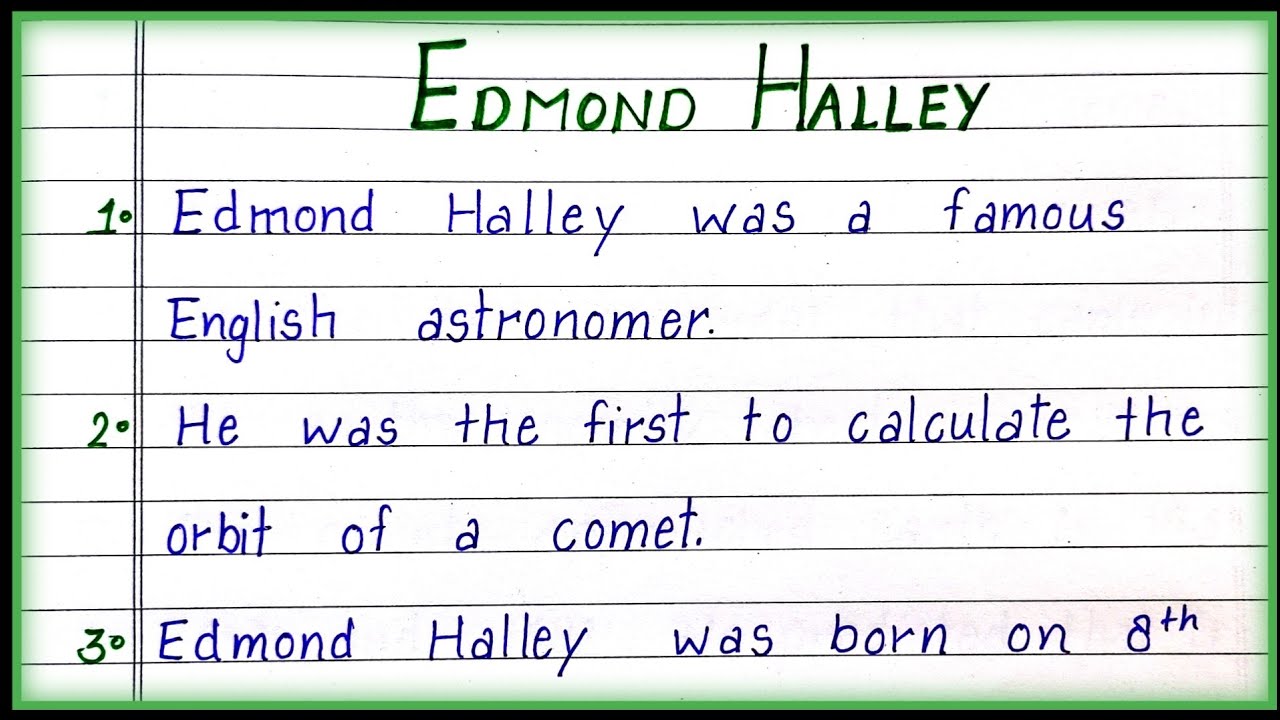 EDMOND HALLEY
1. Edmond Halley was a famous
English astronomer.
2. He was the first to calculate the
orbit of a comet.
3. Edmond Halley was born on 8th